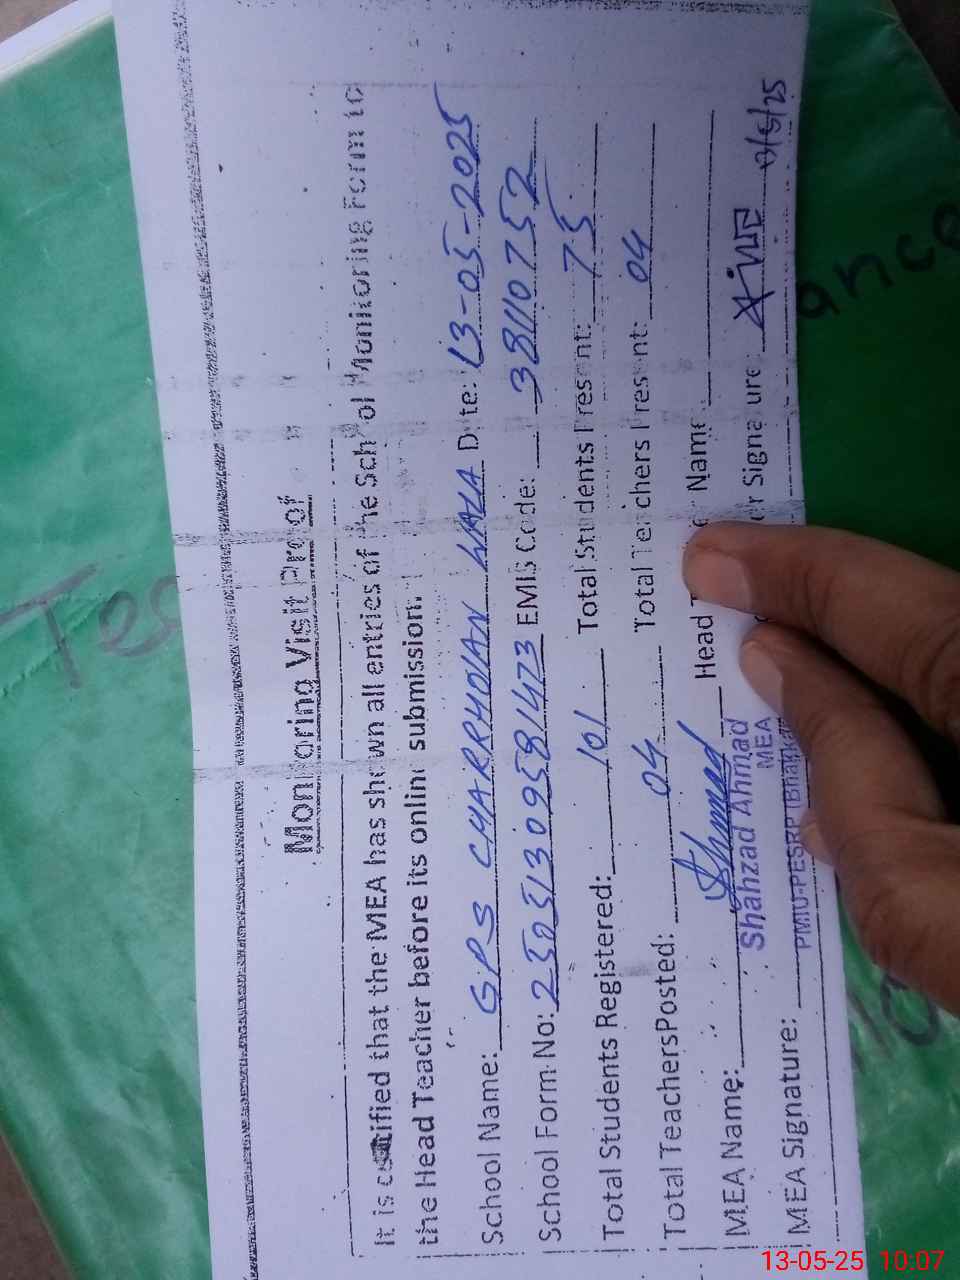 Monitoring Visit Proof
It is certified that the MEA has shown all entries of the School Monitoring Form to
the Head Teacher before its online submission.
School Name: GPS CHARRHOIAN WALA Date: 13-05-2025
School Form No: 25051309581473 EMIS Code: 38110752
Total Students Registered: 101 Total Students Present: 75
Total Teachers Posted: 04 Total Teachers Present: 04
MEA Name: Ahmad Head Name
Shahzad Ahmad
MEA
MEA Signature: PMIU-PESRP (Bhakkar Signature: /5/25
13-05-25 10:07